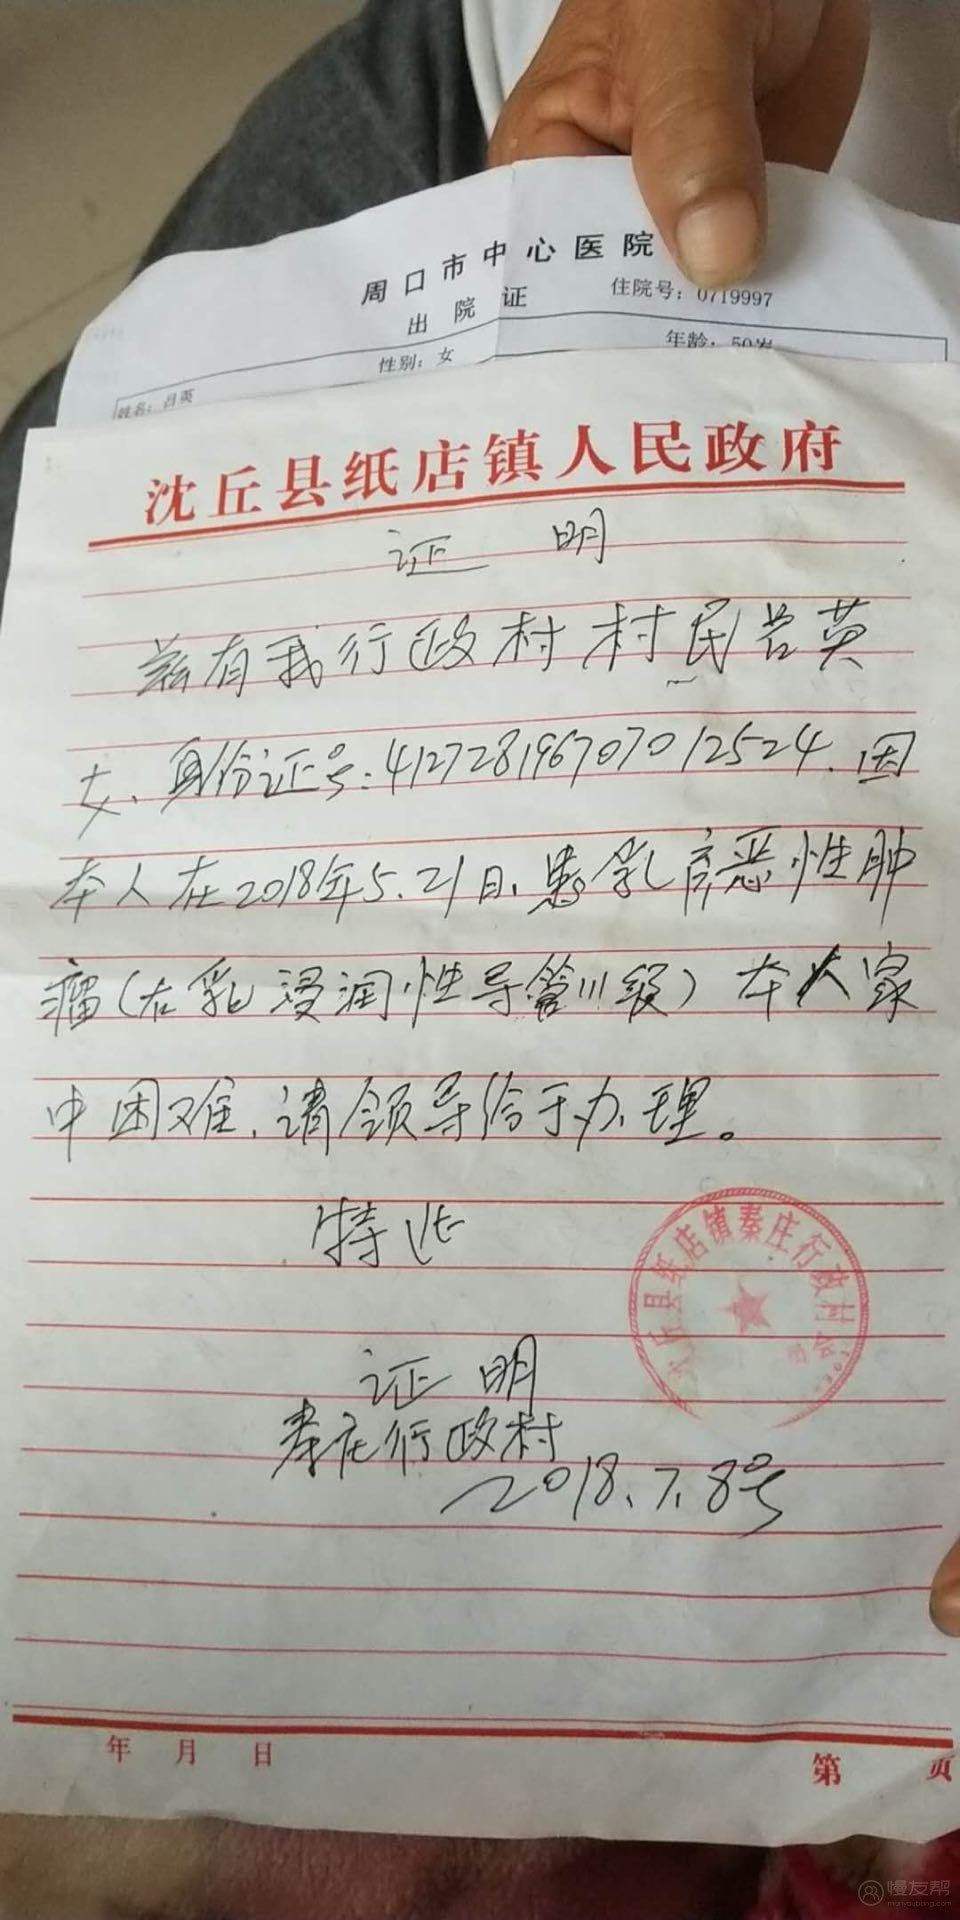 周口市中心医院
出院证
住院号：0719997
姓名：吕英
性别：女
年龄：50岁
沈丘县纸店镇人民政府
证明
兹有我行政村村民吕英
女、身份证号:412728196707012524.因
本人在2018年5.21日、患乳房恶性肿
瘤(右乳浸润性导管III级)本人家
中困难、请领导给于办理。
特此
证明
秦庄行政村
2018.7.8号
丘县纸店镇秦庄行政村
年 月 日
第 页
慢友帮